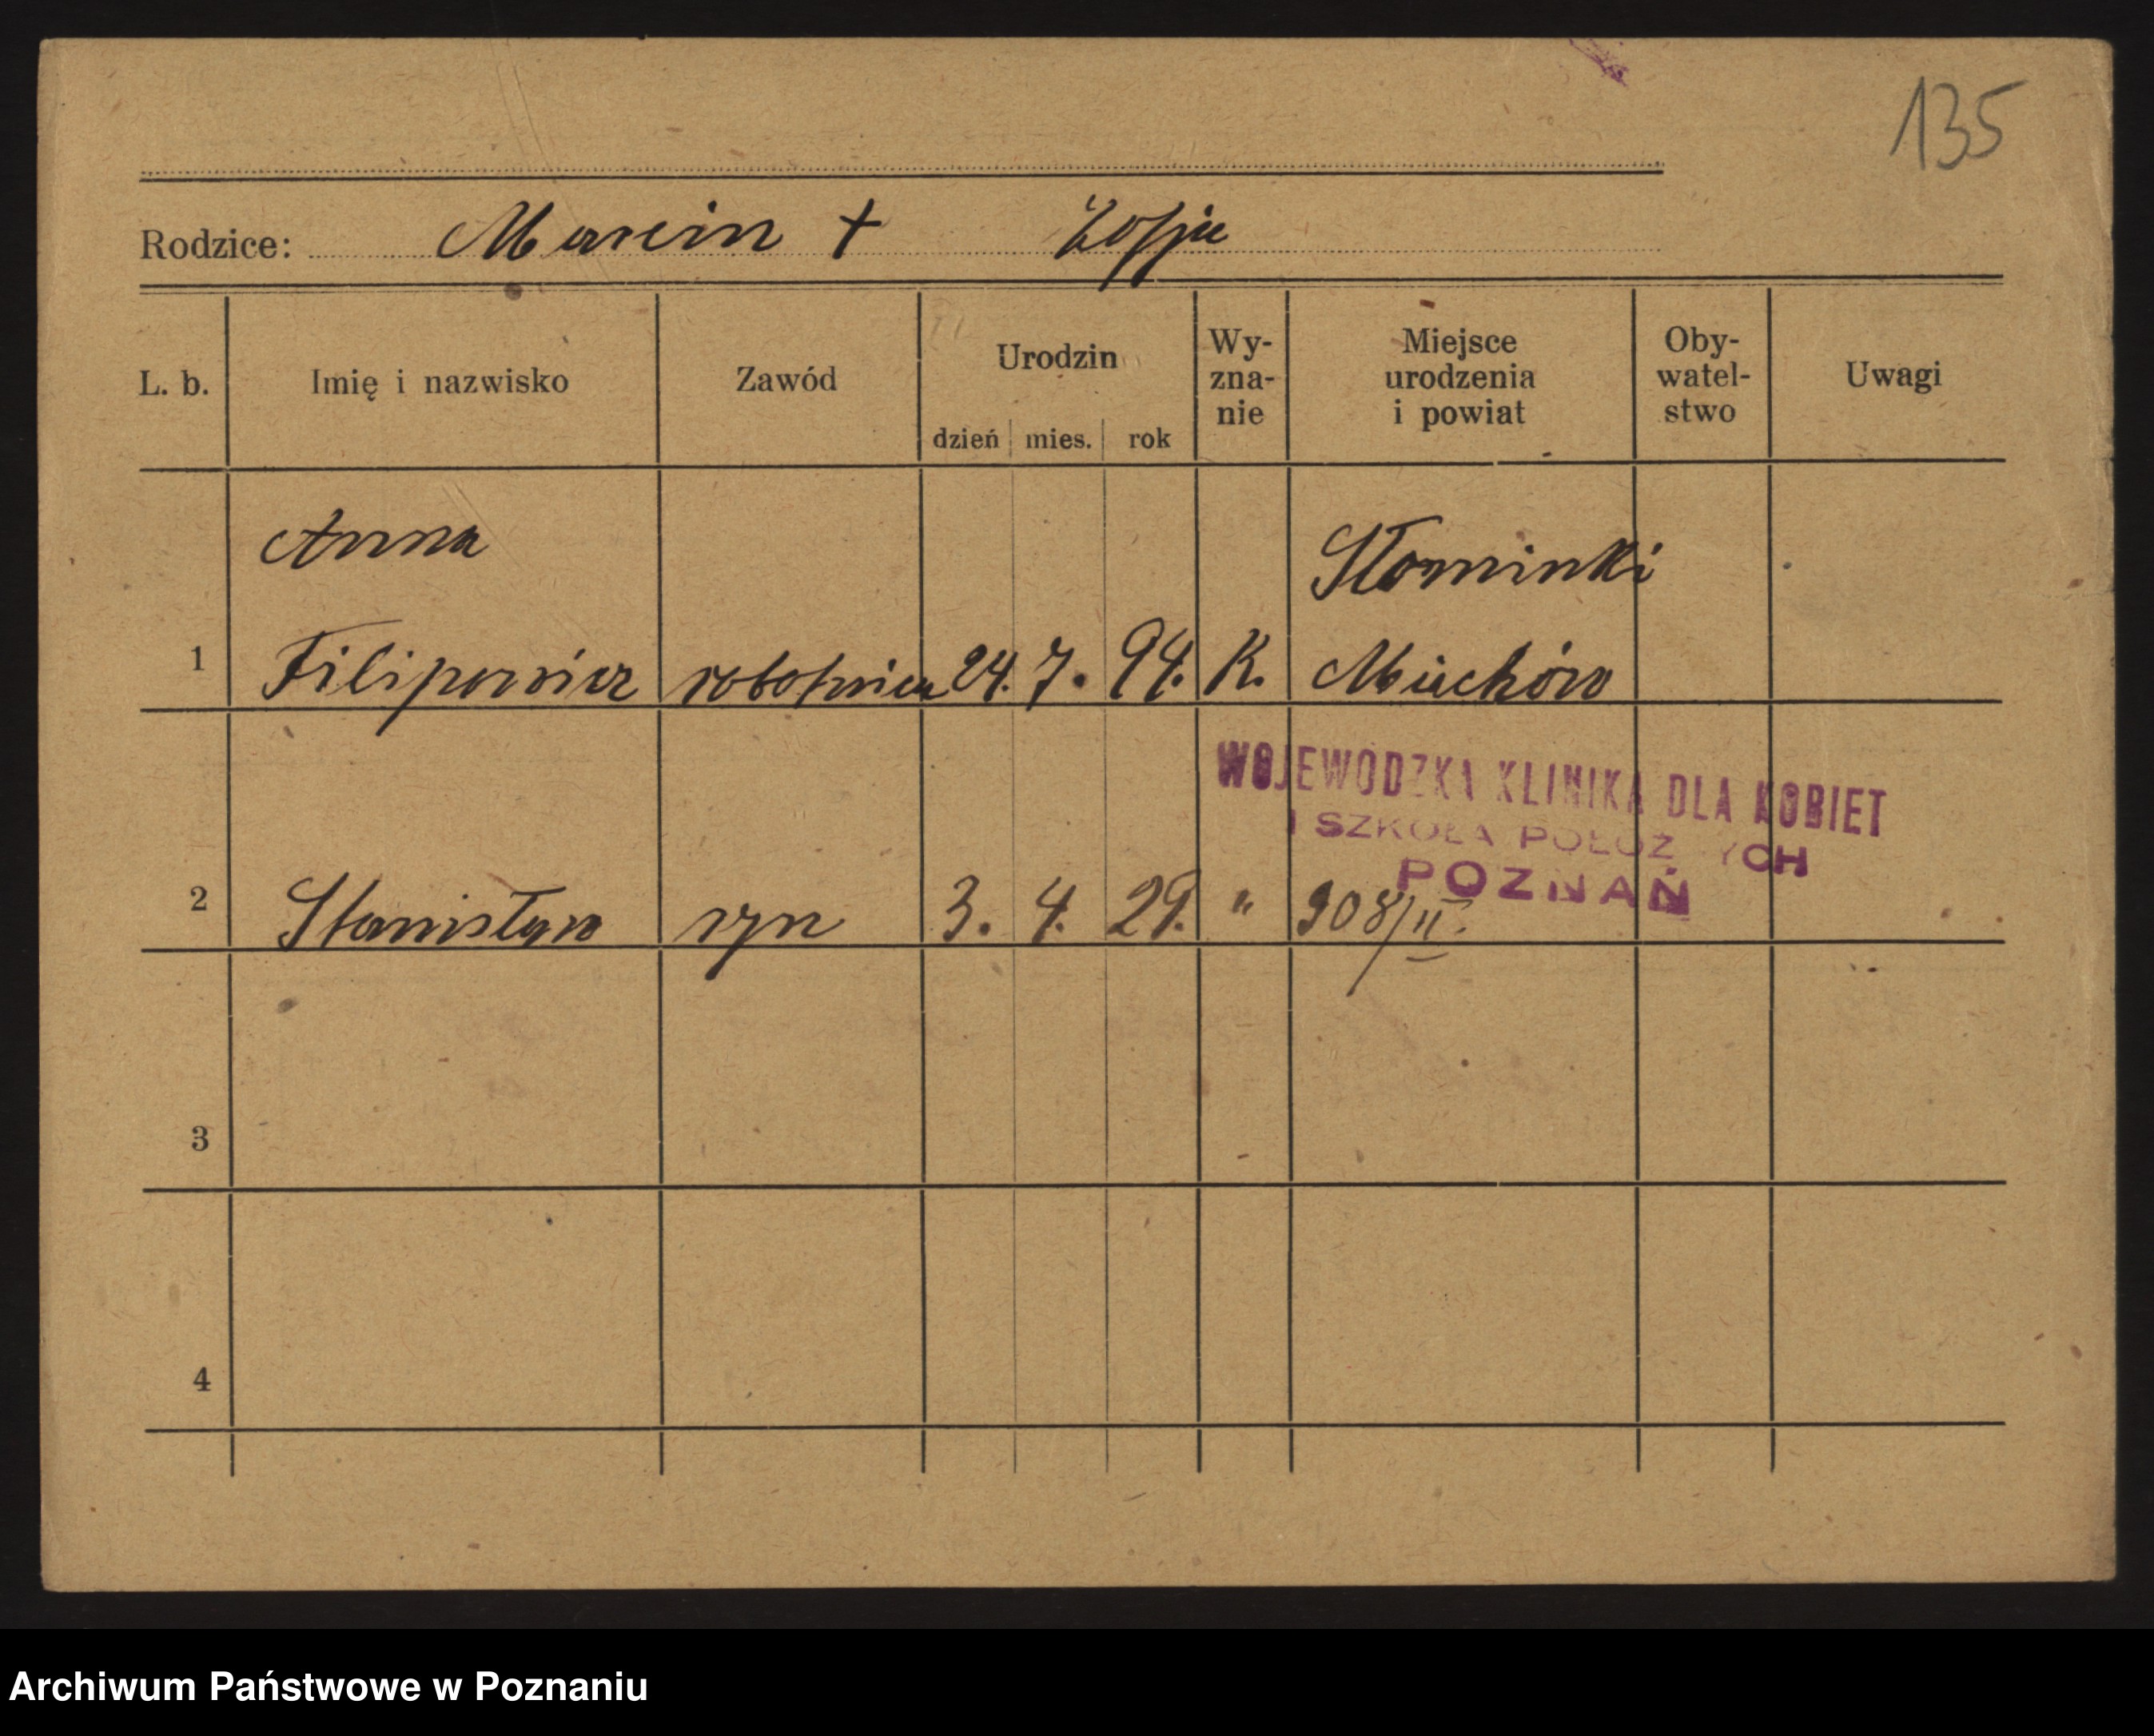 135
Rodzice: Marcin + Zofja
L. b. Imię i nazwisko Zawód Urodzin dzień mies. rok Wy- zna- nie Miejsce urodzenia i powiat Oby- watel- stwo Uwagi
Anna Słominki
1 Filipowicz robotnica 24. 7. 94. K. Miechów
WOJEWÓDZKA KLINIKA DLA KOBIET
I SZKOŁA POŁOŻ YCH
POZNAŃ
2 Stanisław syn 3. 4. 29. " 908/II.
3
4
Archiwum Państwowe w Poznaniu